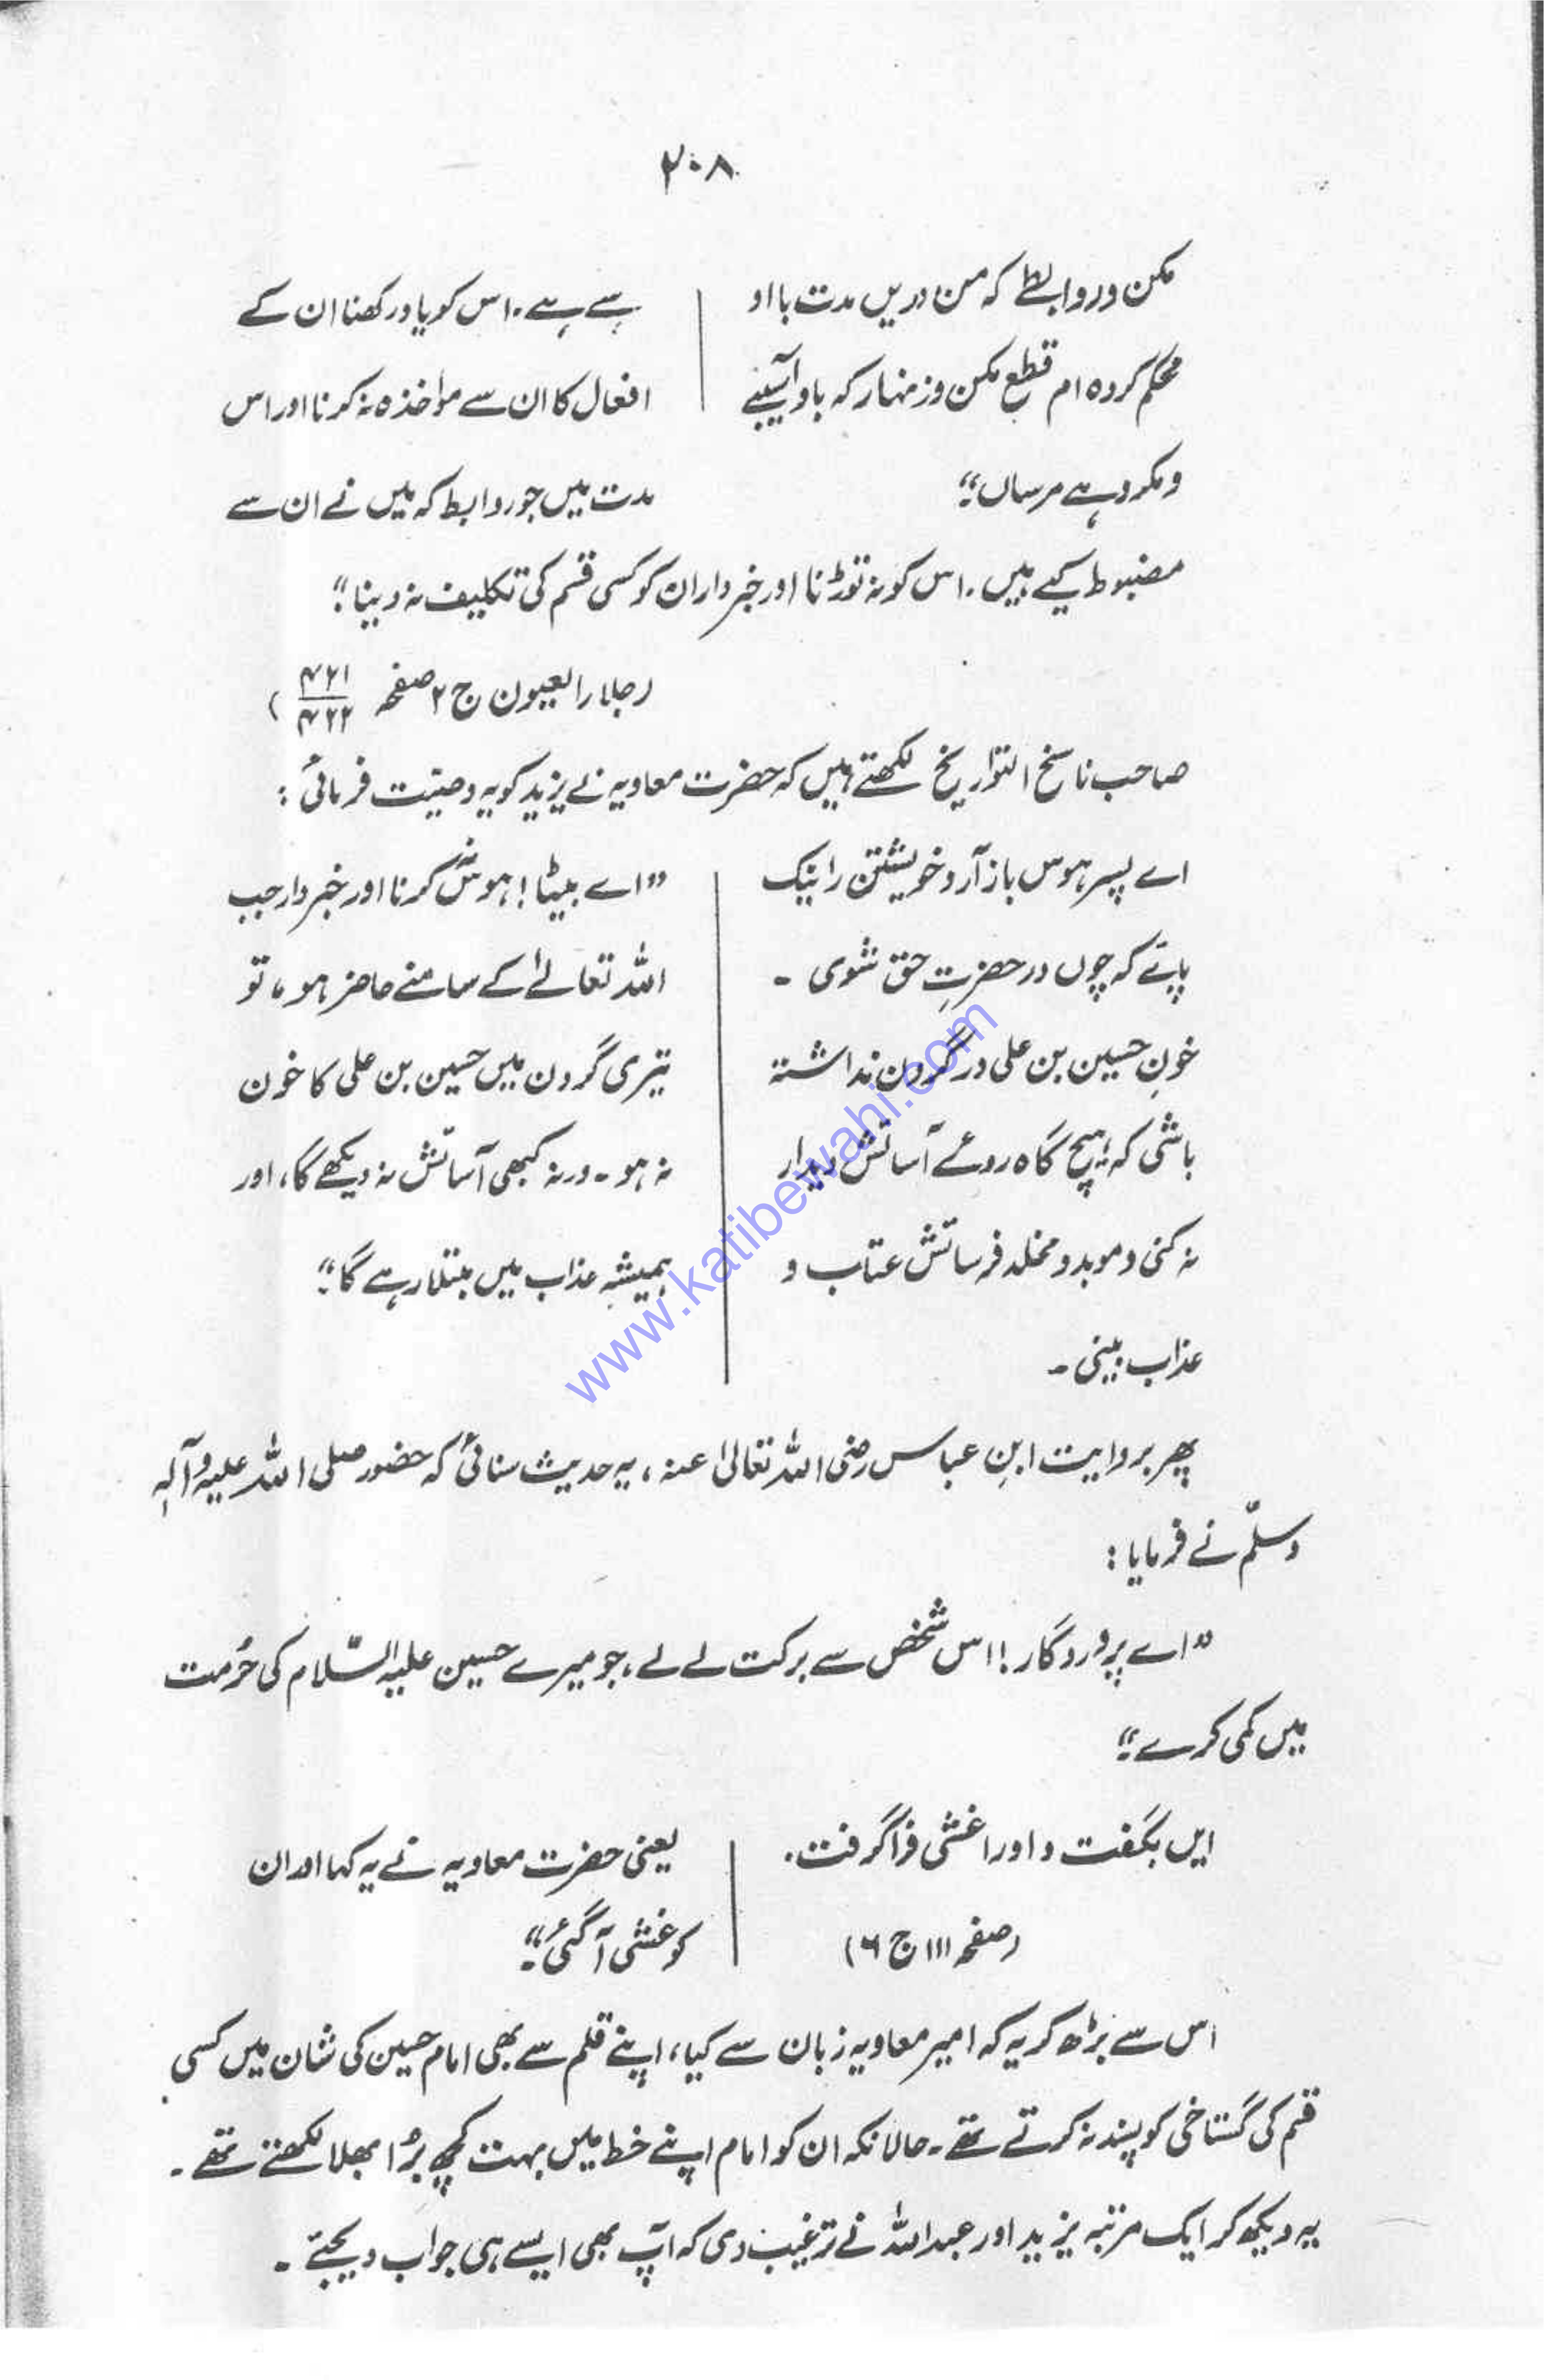 ۲۰۸
مکن و روابطے کہ من دریں مدت با او
محکم کردہ ام قطع مکن و زنہار کہ باو آسیبے
و مکروہے مرساں"
ہے ہے۔ اس کو یاد رکھنا ان کے
افعال کا ان سے مواخذہ نہ کرنا اور اس
مدت میں جو روابط کہ میں نے ان سے
مضبوط کیے ہیں۔ اس کو نہ توڑنا اور خبردار ان کو کسی قسم کی تکلیف نہ دینا"
(جلاء العیون ج ۲ صفحہ ۴۲۱/۴۲۲)
صاحب ناسخ التواریخ لکھتے ہیں کہ حضرت معاویہ نے یزید کو یہ وصیّت فرمائی:
اے پسر ہوس باز آر و خویشتن را نیک
پائے کہ چوں در حضرتِ حق شوی ۔
خونِ حسین بن علی در گردن نداشتہ
باشی کہ ہیچ گاہ روئے آسائش دیدار
نہ کنی و موبد و مخلد فرسائش عتاب و
عذاب بینی ۔
"اے بیٹا! ہوش کرنا اور خبردار جب
اللہ تعالےٰ کے سامنے حاضر ہو، تو
تیری گردن میں حسین بن علی کا خون
نہ ہو ۔ ورنہ کبھی آسائش نہ دیکھے گا، اور
ہمیشہ عذاب میں مبتلا رہے گا"
پھر بروایت ابنِ عباس رضی اللہ تعالیٰ عنہ، یہ حدیث سنائی کہ حضور صلی اللہ علیہ وآلہٖ
وسلّم نے فرمایا:
"اے پروردگار! اس شخص سے برکت لے لے، جو میرے حسین علیہ السّلام کی حُرمت
میں کمی کرے"
ایں بگفت و اورا غشی فراگرفت۔
(صفحہ ۱۱۱ ج ۶)
یعنی حضرت معاویہ نے یہ کہا اور ان
کو غشی آگئی"
اس سے بڑھ کر یہ کہ امیر معاویہ زبان سے کیا، اپنے قلم سے بھی امام حسین کی شان میں کسی
قسم کی گستاخی کو پسند نہ کرتے تھے۔ حالانکہ ان کو امام اپنے خط میں بہت کچھ بُرا بھلا لکھتے تھے۔
یہ دیکھ کر ایک مرتبہ یزید اور عبداللہ نے ترغیب دی کہ آپ بھی ایسے ہی جواب دیجئے ۔
www.katibewahi.com